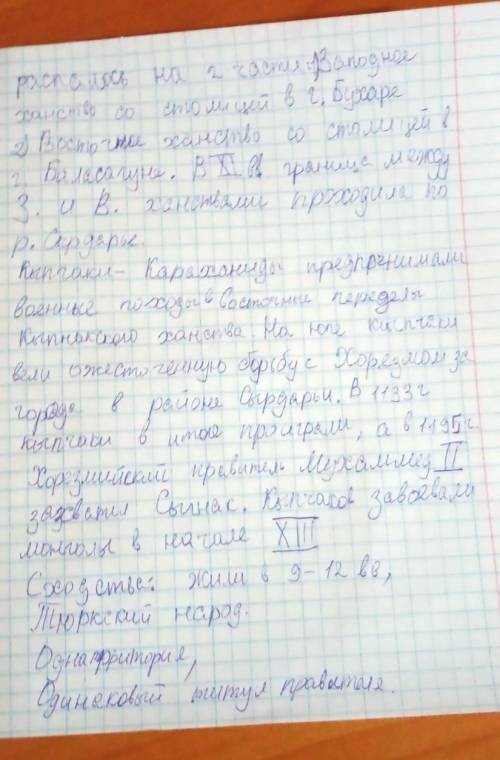 распалось на 2 части: 1) Западное
ханство со столицей в г. Бухаре
2) Восточное ханство со столицей в
г. Баласагуне. В XI вв граница между
З. и В. ханствами проходила по
р. Сырдарье.
Кыпчаки - Караханиды предпринимали
военные походы в восточные переделы
Кыпчакского ханства. На юге кыпчаки
вели ожесточенную борьбу с Хорезмом за
города в районе Сырдарьи. В 1133 г
кыпчаки в итоге проиграли, а в 1195 г.
Хорезмийский правитель Мухаммед II
захватил Сыгнак. Кыпчаков завоевали
монголы в начале XIII
Сходства: жили в 9-12 вв,
Тюркский народ.
Одна территория,
Одинаковый титул правителя.